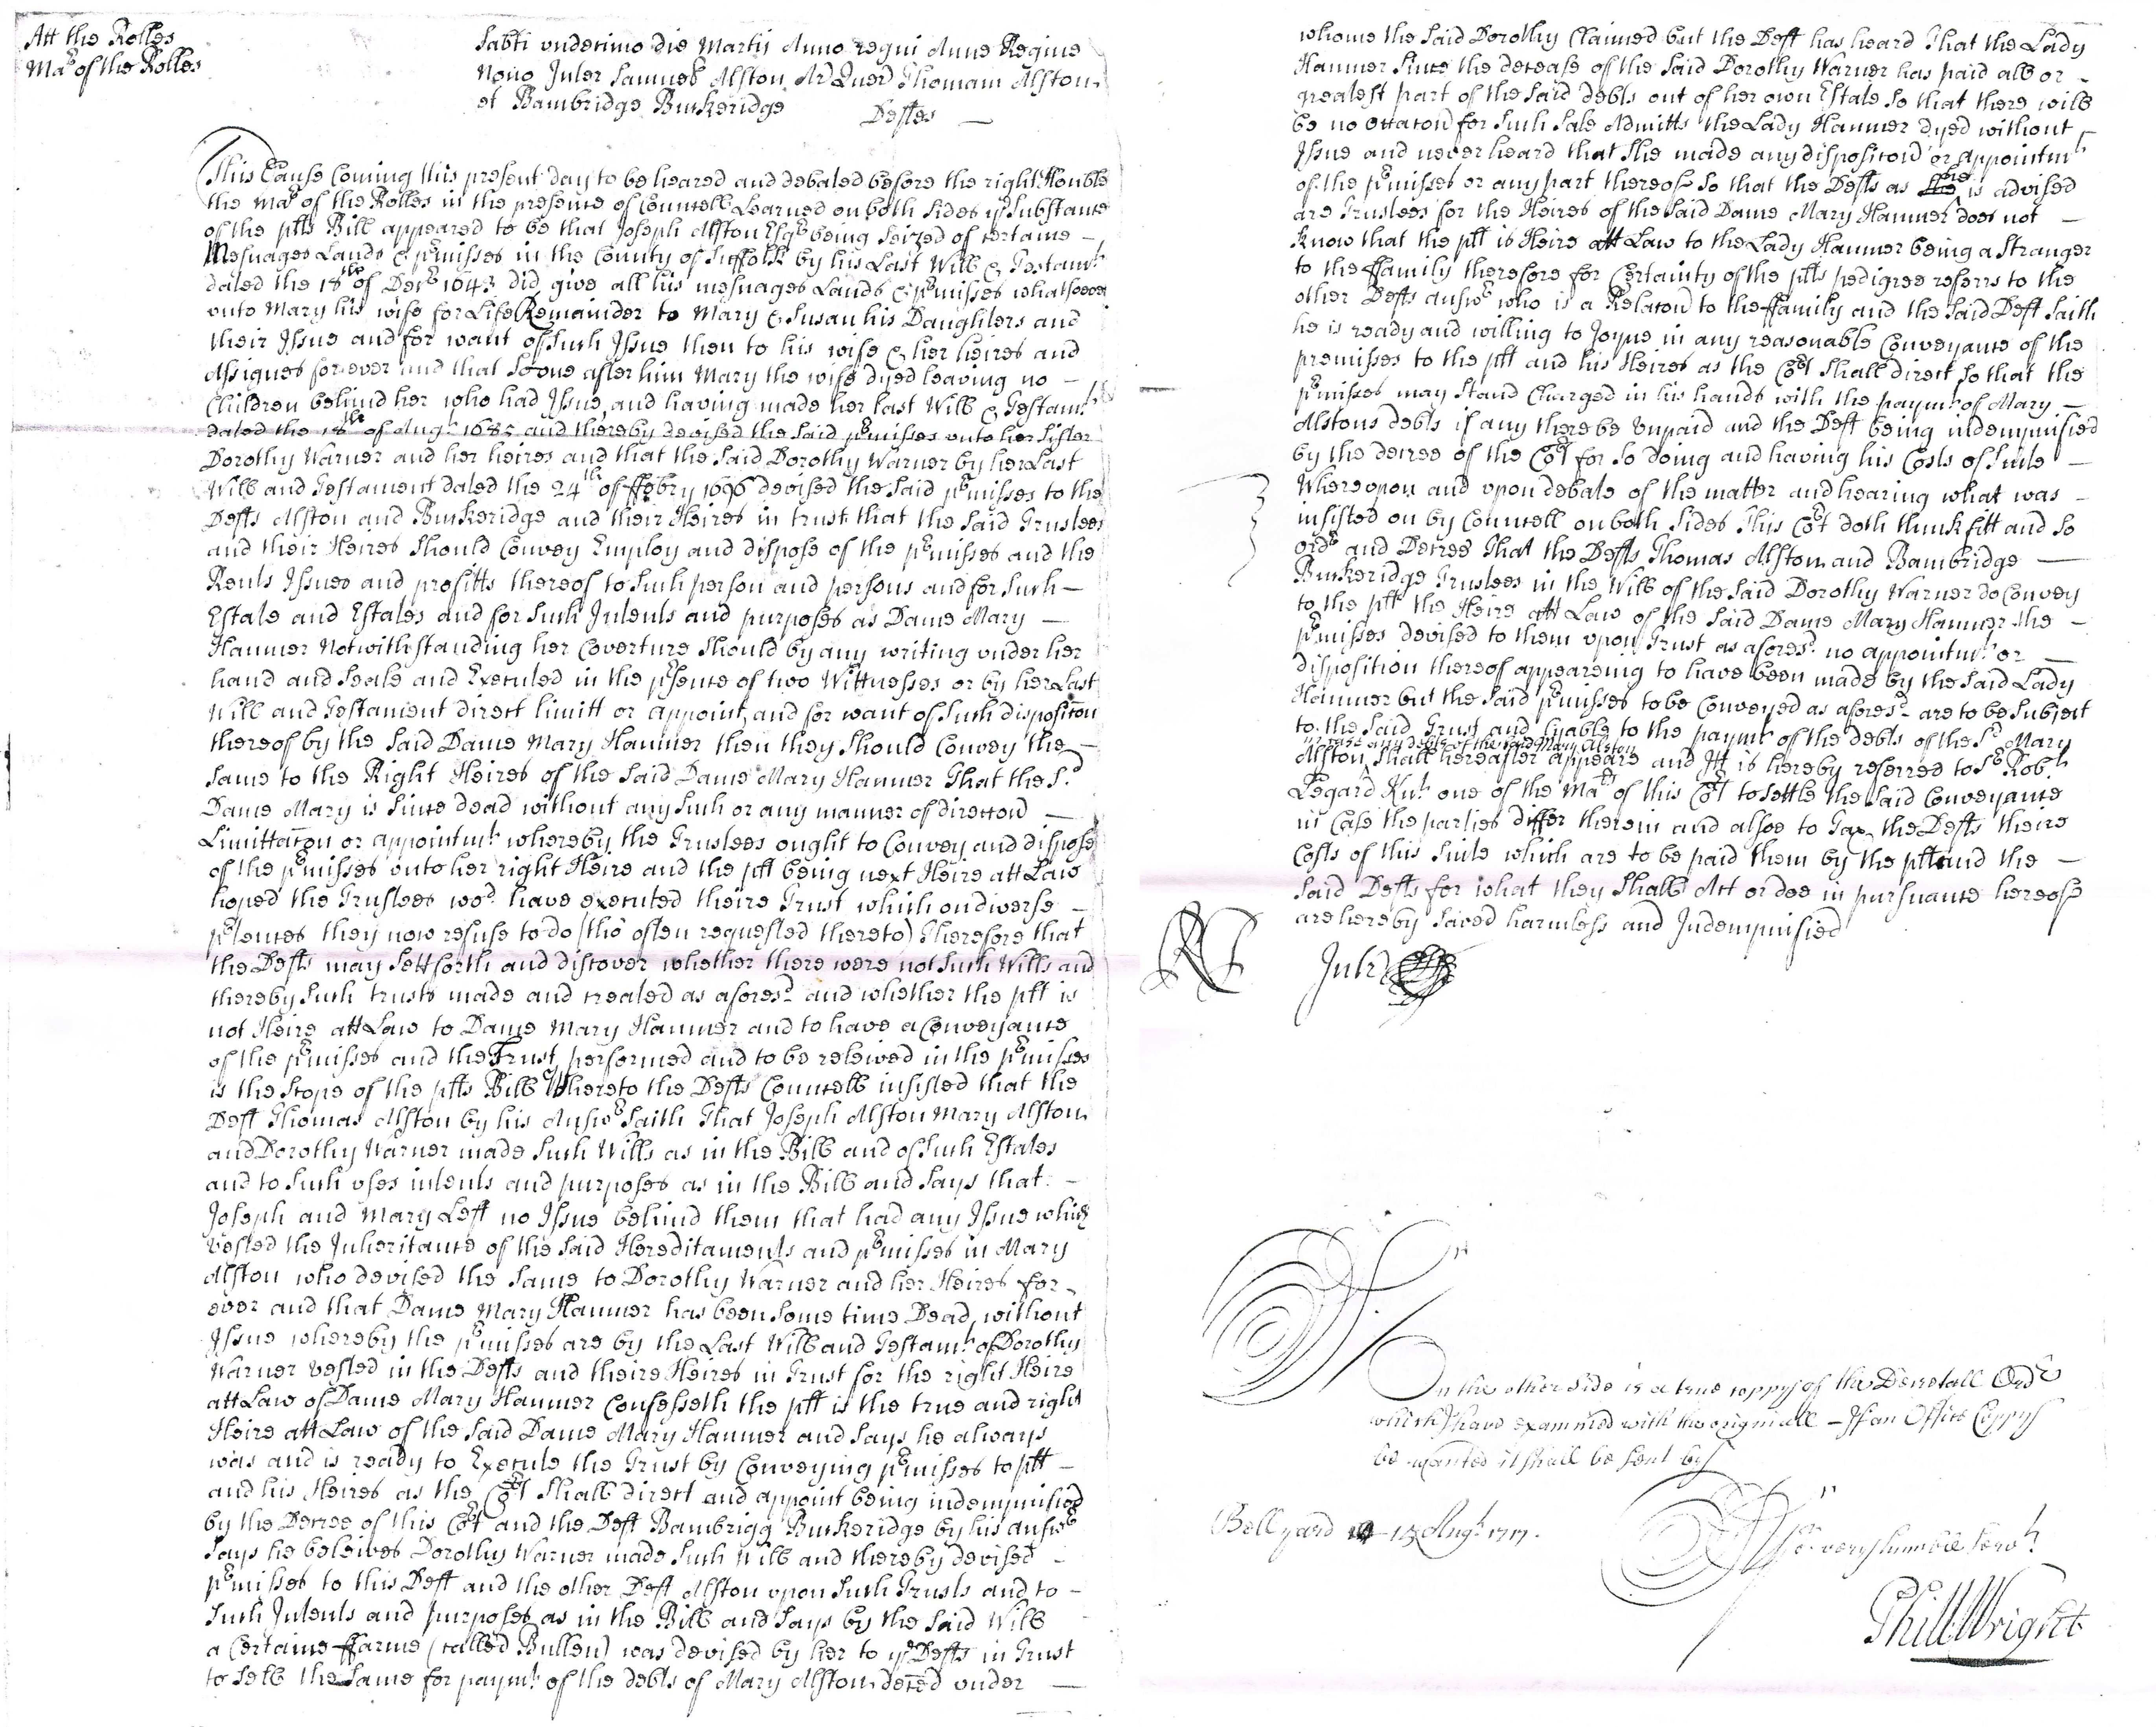 Att the Rolles
Mar of the Rolles
Sabti undecimo die Martij Anno regni Anne Regine
Nono Inter Samuel Alston Ar Quer Thomam Alston
et Bambridge Buckeridge Deftes
This Cause Coming this present day to be heared and debated before the right Honble
the Mar of the Rolles in the presence of Councell Learned on both sides ye Substance
of the plts Bill appeared to be that Joseph Alston Esqr being Seized of certaine
Messuages Lands & prmisses in the County of Suffolk by his Last Will & Testamt
dated the 18th of Decr 1643 did give all his messuages Lands & prmisses whatsoever
unto Mary his wife for Life Remainder to Mary & Susan his Daughters and
their Issue and for want of Such Issue then to his wife & her heires and
Assignes for ever and that Soone after him Mary the wife dyed leaving no
Children behind her who had Issue and having made her last Will & Testamt
dated the 18th of Augt 1685 and thereby devised the said prmisses unto her Sister
Dorothy Warner and her heires and that the said Dorothy Warner by her Last
Will and Testament dated the 24th of ffebry 1696 devised the said prmisses to the
Defts Alston and Buckeridge and their Heires in trust that the said Trustees
and their Heires should Convey Employ and dispose of the prmisses and the
Rents Issues and profitts thereof to Such person and persons and for Such
Estate and Estates and for Such Intents and purposes as Dame Mary
Hanmer Notwithstanding her Coverture should by any writing under her
hand and Seale and Executed in the prsence of two Wittnesses or by her Last
Will and Testament direct limitt or appoint, and for want of such dispositon
thereof by the said Dame Mary Hanmer then they should Convey the
Same to the Right Heires of the said Dame Mary Hanmer That the sd
Dame Mary is since dead without any Such or any manner of directon
Limittaton or appointmt whereby the Trustees ought to Convey and dispose
of the prmisses unto her right Heire and the plt being next Heire att Law
hoped the Trustees wod have executed theire Trust which on diverse
prtences they now refuse to do (tho often requested thereto) Therefore that
the Defts may Sett forth and discover whether there were not Such Wills and
thereby Such trusts made and created as aforesd and whether the plt is
not Heire att Law to Dame Mary Hanmer and to have a Conveyance
of the prmisses and the Trust performed and to be releived in the prmisses
is the Scope of the plts Bill Whereto the Defts Councell insisted that the
Deft Thomas Alston by his Answr Saith That Joseph Alston Mary Alston
and Dorothy Warner made Such Wills as in the Bill and of Such Estates
and to Such uses intents and purposes as in the Bill and Says that
Joseph and Mary Left no Issue behind them that had any Issue which
vested the Inheritance of the said Hereditaments and prmisses in Mary
Alston who devised the Same to Dorothy Warner and her Heires for
ever and that Dame Mary Hanmer has been Some time Dead without
Issue whereby the prmisses are by the Last Will and Testamt of Dorothy
Warner vested in the Defts and theire Heires in Trust for the right Heire
att Law of Dame Mary Hanmer Confesseth the plt is the true and right
Heire att Law of the said Dame Mary Hanmer and Says he always
was and is ready to Execute the Trust by Conveying prmisses to plt
and his Heires as the Cort Shall direct and appoint being indempnified
by the Decree of this Cort and the Deft Bambrigg Buckeridge by his answr
Says he beleives Dorothy Warner made Such Will and thereby devised
prmisses to this Deft and the other Deft Alston upon Such Trusts and to
Such Intents and purposes as in the Bill and Says by the said Will
a Certaine ffarme (called Bullen) was devised by her to ye Defts in Trust
to Sell the Same for paymt of the debts of Mary Alston deced under
whome the said Dorothy Claimed but the Deft has heard That the Lady
Hanmer Since the decease of the said Dorothy Warner has paid all or
greatest part of the said debts out of her own Estate so that there will
be no occaton for Such Sale Admitts the Lady Hanmer dyed without
Issue and never heard that She made any dispositon or appointmt
of the prmisses or any part thereof so that the Defts as he is advised
are Trustees for the Heires of the said Dame Mary Hanmer does not
know that the plt is Heire att Law to the Lady Hanmer being a Stranger
to the ffamily therefore for Certainty of the plts pedigree referrs to the
other Defts answr who is a Relaton to the ffamily and the said Deft Saith
he is ready and willing to Joyne in any reasonable Conveyance of the
premisses to the plt and his Heires as the Cort Shall direct so that the
prmisses may Stand Charged in his hands with the paymt of Mary
Alstons debts if any there be unpaid and the Deft being indempnified
by the decree of the Cort for so doing and having his Costs of Suite
Whereupon and upon debate of the matter and hearing what was
insisted on by Councell on both sides This Cort doth think fitt and so
ordr and Decree That the Defts Thomas Alston and Bambridge
Buckeridge Trustees in the Will of the said Dorothy Warner do Convey
to the plt the Heire att Law of the said Dame Mary Hanmer the
prmisses devised to them upon Trust as aforesd no appointmt or
disposition thereof appeareing to have been made by the said Lady
Hanmer but the said prmisses to be Conveyed as aforesd are to be Subject
to the said Trust and lyable to the paymt of the debts of the sd Mary
in case any debts of the said Mary Alston
Alston Shall hereafter appeare and Itt is hereby referred to Sr Robt
Legard Knt one of the Mars of this Cort to settle the said Conveyance
in Case the parties differ therein and alsoe to Tax the Defts theire
Costs of this Suite which are to be paid them by the plt and the
said Defts for what they Shall Act or doe in pursuance hereof
are hereby Saved harmless and Indempnified
Sr
On the other side is a true coppy of the Decretall Ordr
which I have examined with the originall - If an Office Coppy
be wanted it shall be sent by
Sr
Bell yard 13 Augt 1717.
Yor very humble Servt
Phill Wright